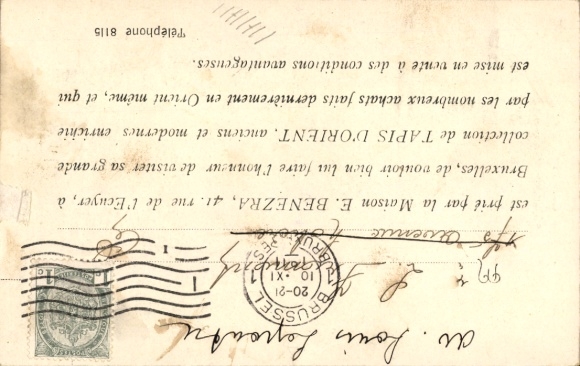 M. Louis
est prié par la Maison E. BENEZRA, 41, rue de l'Ecuyer, à
Bruxelles, de vouloir bien lui faire l'honneur de visiter sa grande
collection de TAPIS D'ORIENT, anciens et modernes enrichie
par les nombreux achats faits dernièrement en Orient même, et qui
est mise en vente à des conditions avantageuses.
Téléphone 8115
BRUSSEL
20-21
10 · XI
1
1c
1c